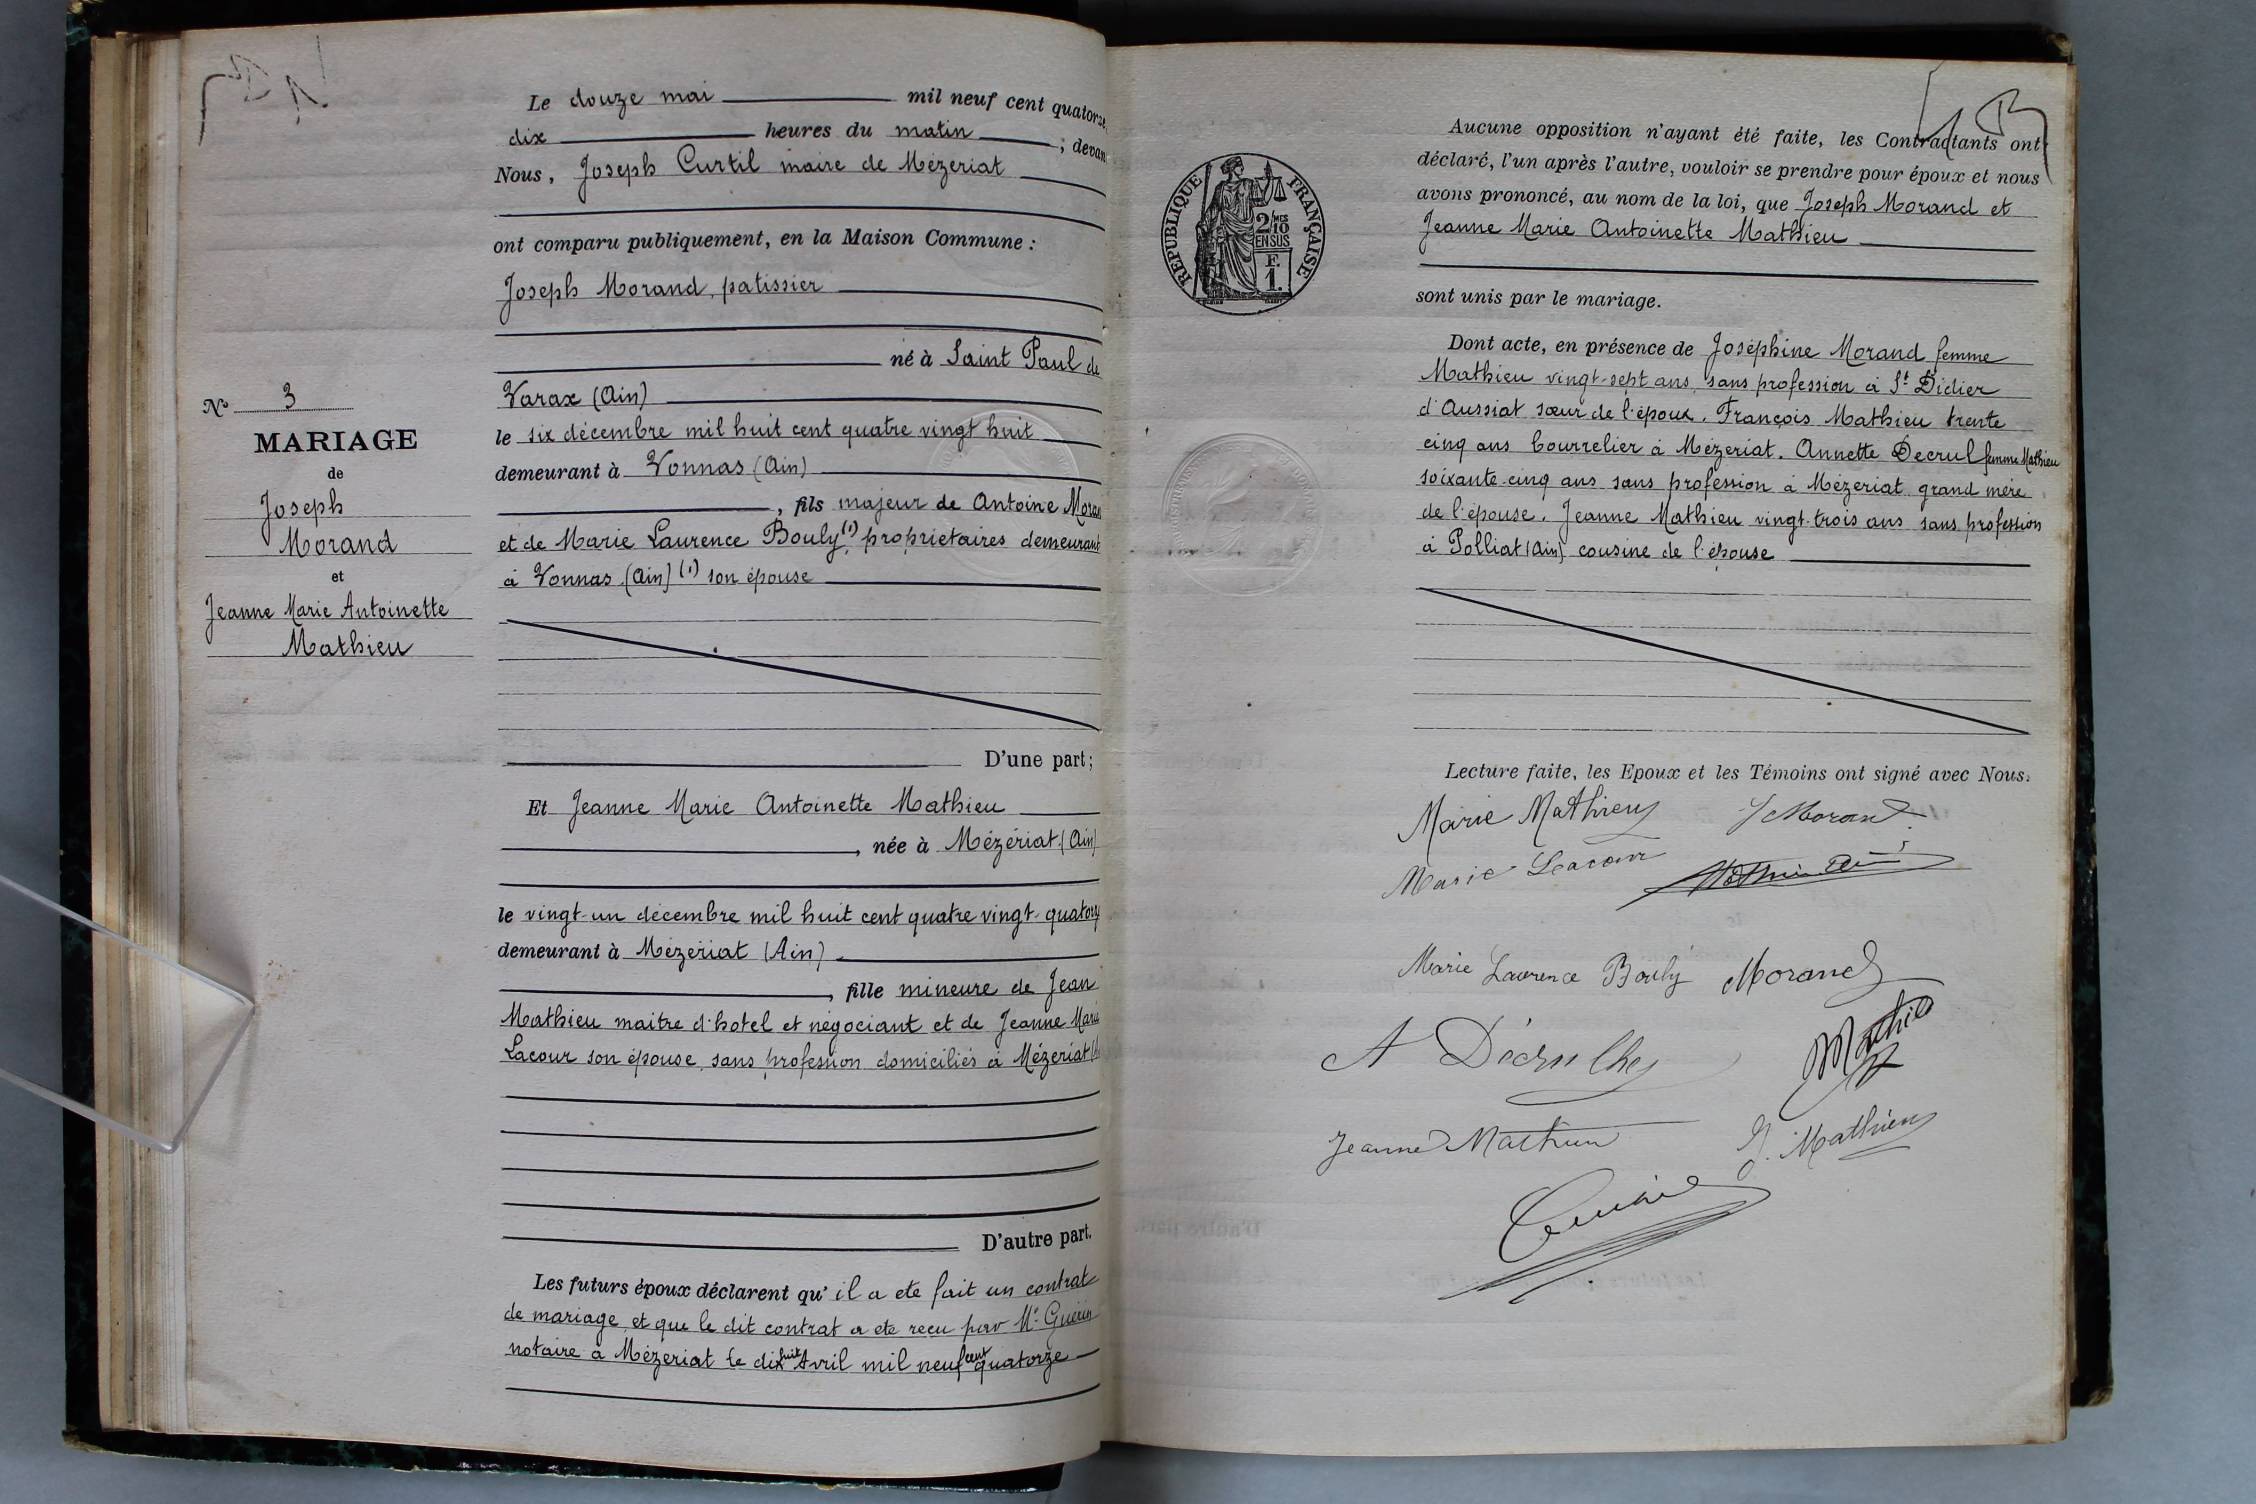 N° 3
MARIAGE
de
Joseph
Morand
et
Jeanne Marie Antoinette
Mathieu
Le douze mai mil neuf cent quatorze,
dix heures du matin ; devan
Nous, Joseph Curtil maire de Mézeriat
ont comparu publiquement, en la Maison Commune :
Joseph Morand, patissier
né à Saint Paul de
Varax (Ain)
le six décembre mil huit cent quatre vingt huit
demeurant à Vonnas (Ain)
, fils majeur de Antoine Moran
et de Marie Laurence Bouly (1), propriétaires demeurant
à Vonnas (Ain) (1) son épouse
D'une part;
Et Jeanne Marie Antoinette Mathieu
, née à Mézériat (Ain)
le vingt-un décembre mil huit cent quatre vingt-quatorz
demeurant à Mézériat (Ain)
, fille mineure de Jean
Mathieu maitre d'hotel et négociant et de Jeanne Marie
Lacour son épouse, sans profession domiciliés à Mézeriat
D'autre part.
Les futurs époux déclarent qu' il a ete fait un contrat
de mariage, et que le dit contrat a ete recu par Me Guérin
notaire a Mézeriat le dix huit Avril mil neuf cent quatorze
RÉPUBLIQUE FRANÇAISE
2/10 MES
EN SUS
F.
1.
Aucune opposition n'ayant été faite, les Contractants ont
déclaré, l'un après l'autre, vouloir se prendre pour époux et nous
avons prononcé, au nom de la loi, que Joseph Morand et
Jeanne Marie Antoinette Mathieu
sont unis par le mariage.
Dont acte, en présence de Joséphine Morand femme
Mathieu vingt-sept ans, sans profession à St Didier
d'Aussiat sœur de l'époux. François Mathieu trente
cinq ans bourrelier à Mézeriat. Annette Decrul femme Mathieu
soixante-cinq ans sans profession à Mézeriat grand mère
de l'épouse. Jeanne Mathieu vingt-trois ans sans profession
à Polliat (Ain) cousine de l'épouse
Lecture faite, les Epoux et les Témoins ont signé avec Nous.
Marie Mathieu J Morand
Marie Lacour
Marie Laurence Bouly Morand
A Décrulhe Mathieu
Jeanne Mathieu J. Mathieu